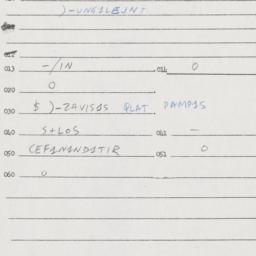 )-UNGILEINT
012
013 -/IN 014 0
020 0
030 $ )-ZAVISAS PLAT DAMPAS
040 S+LOS 041 -
050 CEFANANDATIR 051 0
060 0